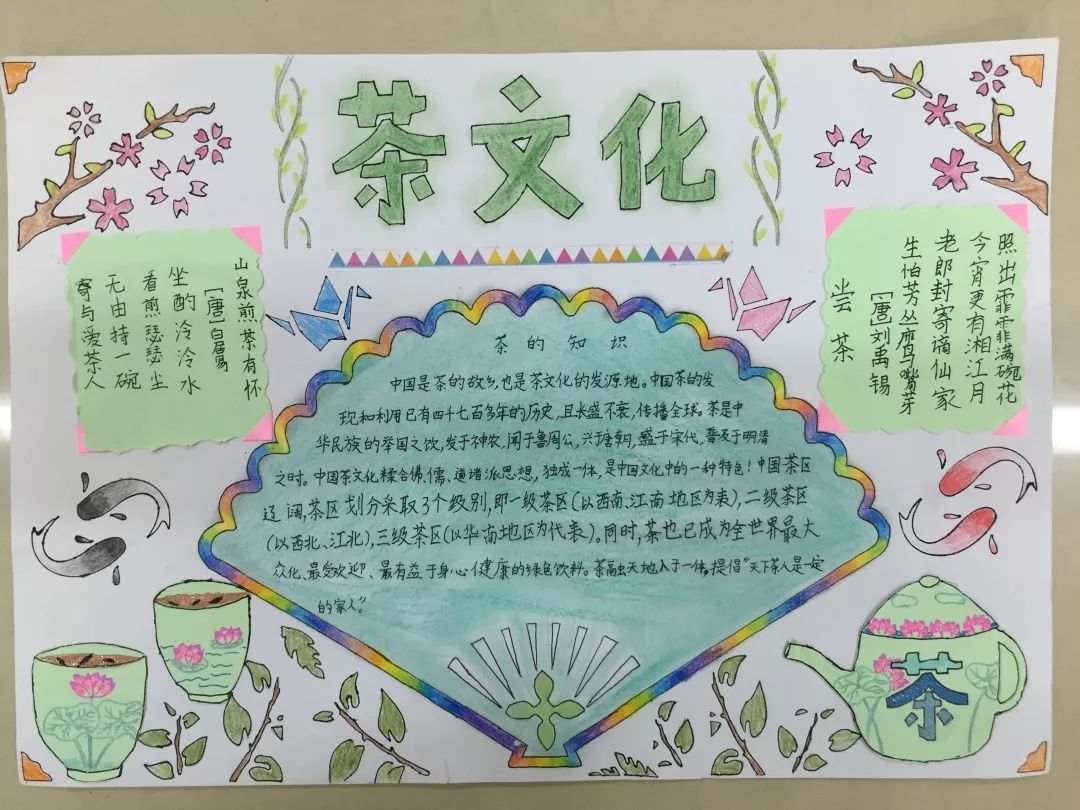 茶文化
山泉煎茶有怀
[唐]白居易
坐酌泠泠水
看煎瑟瑟尘
无由持一碗
寄与爱茶人
尝茶
[唐]刘禹锡
生怕芳丛鹰嘴芽
老郎封寄谪仙家
今宵更有湘江月
照出霏霏满碗花
茶的知识
中国是茶的故乡,也是茶文化的发源地。中国茶的发
现和利用已有四千七百多年的历史,且长盛不衰,传播全球。茶是中
华民族的举国之饮,发于神农,闻于鲁周公,兴于唐朝,盛于宋代,普及于明清
之时。中国茶文化糅合佛、儒、道诸派思想,独成一体,是中国文化中的一种特色!中国茶区
辽阔,茶区划分采取3个级别,即一级茶区(以西南、江南地区为表),二级茶区
(以西北、江北),三级茶区(以华南地区为代表)。同时,茶也已成为全世界最大
众化、最受欢迎、最有益于身心健康的绿色饮料。茶融天地人于一体,提倡“天下茶人是一定
的家人”。
茶